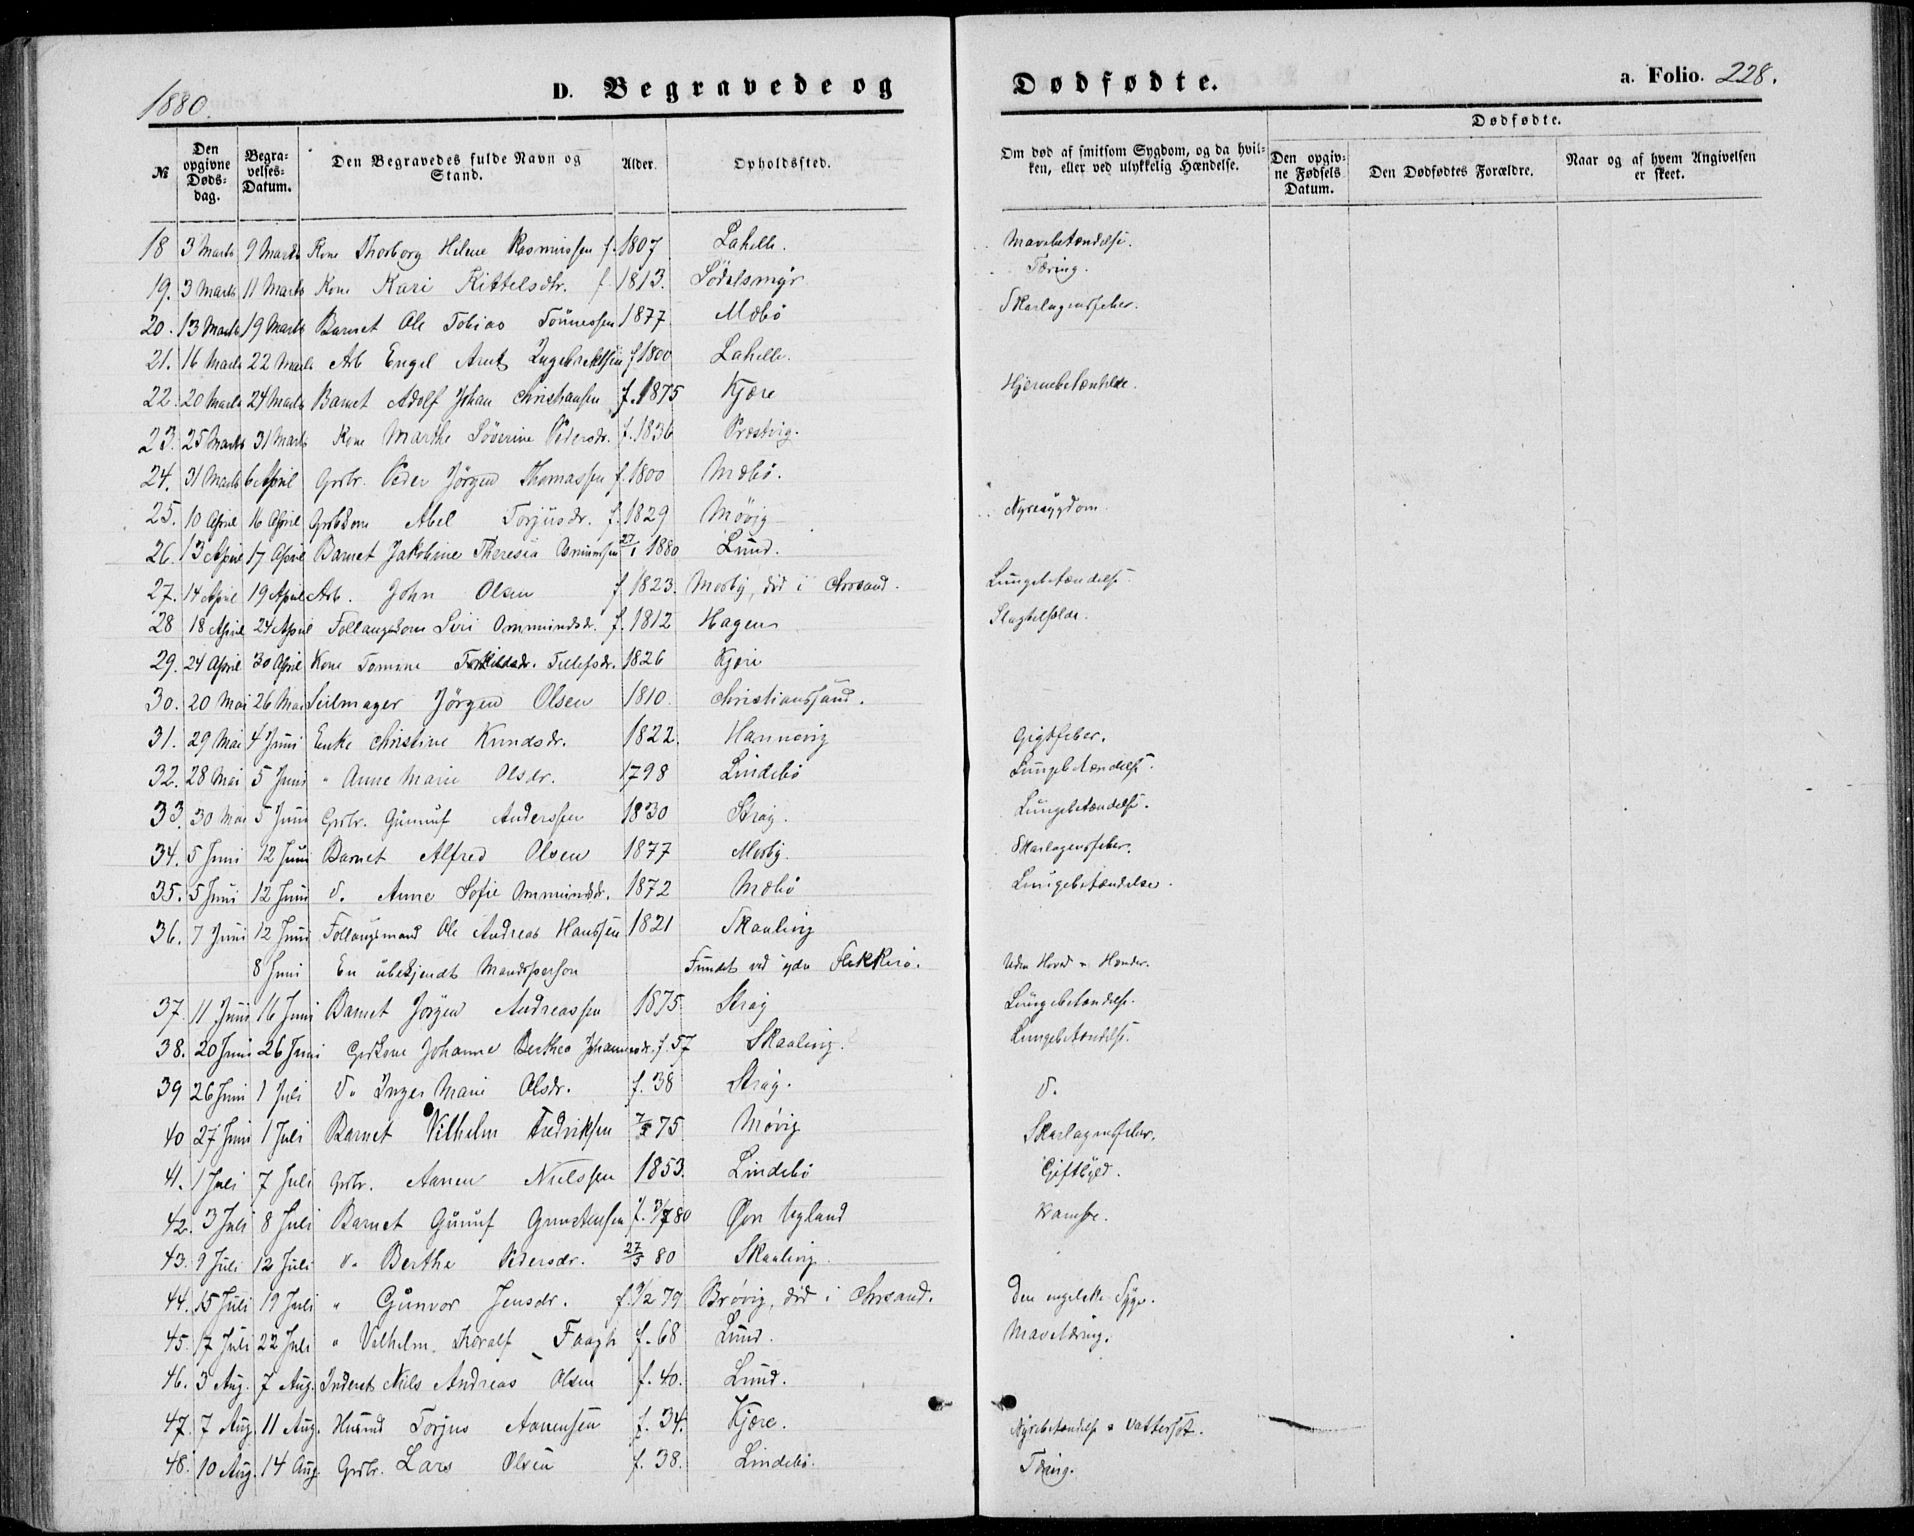 1880.
D. Begravede og
Dødfødte.
a. Folio. 228.
№
Den opgivne Døds-dag.
Begra-velses-Datum.
Den Begravedes fulde Navn og Stand.
Alder.
Opholdssted.
Om død af smitsom Sygdom, og da hvil-ken, eller ved ulykkelig Hændelse.
Dødfødte.
Den opgiv-ne Fødsels Datum.
Den Dødfødtes Forældre.
Naar og af hvem Angivelsen er skeet.
18 3 Marts 9 Marts Kone Thorborg Helene Rasmussen f. 1807 Lahelle. Mavebetændelse.
19. 3 Marts 11 Marts Kone Kari Kittelsdtr. f. 1813. Lødelsmyr Tæring.
20. 13 Marts 19 Marts Barnet Ole Tobias Tønnessen 1877 Mæbø Skarlagensfeber.
21. 16 Marts 22 Marts Arb Engel Arnt Ingebrektsen f 1800 Lahelle.
22. 20 Marts 24 Marts Barnet Adolf Johan Christiansen f. 1875 Kjære Hjernebetændelse.
23. 25 Marts 31 Marts Kone Marthe Søverine Pedersdr. f. 1836 Præstvig.
24. 31 Marts 6 April Grbr. Peder Jørgen Thomassen f. 1800 Mæbø.
25. 10 April 16 April Grbkone Abel Torjusdr. f. 1829 Møvig Nyresygdom
26. 13 April 17 April Barnet Jakobine Theresia Ommundsen 27/1 1880 Lund.
27. 14 April 19 April Arb. John Olsen f 1823. Mosby, død i Chrsand. Lungebetændelse
28 18 April 24 April Follaugskone Siri Ommundsdr. f. 1812 Hagen Slagtilfælde.
29. 24 April 30 April Kone Tomine Torkildsdr. Tellefsdr. 1826 Kjære
30. 20 Mai 26 Mai Seilmager Jørgen Olsen 1810. Christianssand.
31. 29 Mai 4 Juni Enke Christine Knudsdr. 1822. Hannevig Gigtfeber.
32. 28 Mai 5 Juni " Anne Marie Olsdr. 1798 Lindebø Lungebetændelse.
33. 30 Mai 5 Juni Grbr. Gunnuf Anderssen 1830 Strai. Lungebetændelse.
34. 5 Juni 12 Juni Barnet Alfred Olsen 1877 Mosby. Skarlagensfeber.
35. 5 Juni 12 Juni d. Anne Sofie Ommundsdr. 1872 Mæbø Lungebetændelse.
36. 7 Juni 12 Juni Follaugsmand Ole Andreas Hanssen 1821 Skaalevig
8 Juni En ubekjendt Mandsperson Fundet ved ydre Flekkerø. Uden Hoved & Hænder.
37. 11 Juni 16 Juni Barnet Jørgen Andreassen 1875. Strai Lungebetændelse.
38. 20 Juni 26 Juni Grkone Johanne Berthea Johannesdr. f. 57 Skaalevig. Lungebetændelse.
39 26 Juni 1 Juli d. Inger Marie Olsdr. f. 38 Strai. d.
40 27 Juni 1 Juli Barnet Vilhelm Fredriksen 7/5 75 Møvig Skarlagensfeber.
41. 1 Juli 7 Juli Grbr. Aanen Nielssen 1853. Lindebø Giftbyld.
42. 3 Juli 8 Juli Barnet Gunuf Grunstensen f. 3/7 80 Øvr Vegland Krampe.
43. 9 Juli 12 Juli d. Berthe Pedersdr. 27/5 80 Skaalevig.
44. 15 Juli 19 Juli " Gunvor Jensdr. f. 9/2 79 Brøvig, død i Chrsand. Den engelske Syge.
45. 17 Juli 22 Juli " Vilhelm Thoralf Faagh f. 68 Lund. Mavetæring.
46. 3 Aug. 7 Aug. Inderst Niels Andreas Olsen f. 40. Lund.
47. 7 Aug 11 Aug. Husmd Torjus Aanensen f. 34. Kjære. Nyrebetændelse & Vattersot.
48. 10 Aug. 14 Aug. Grbr. Lars Olsen f. 38. Lindebø. Tæring.